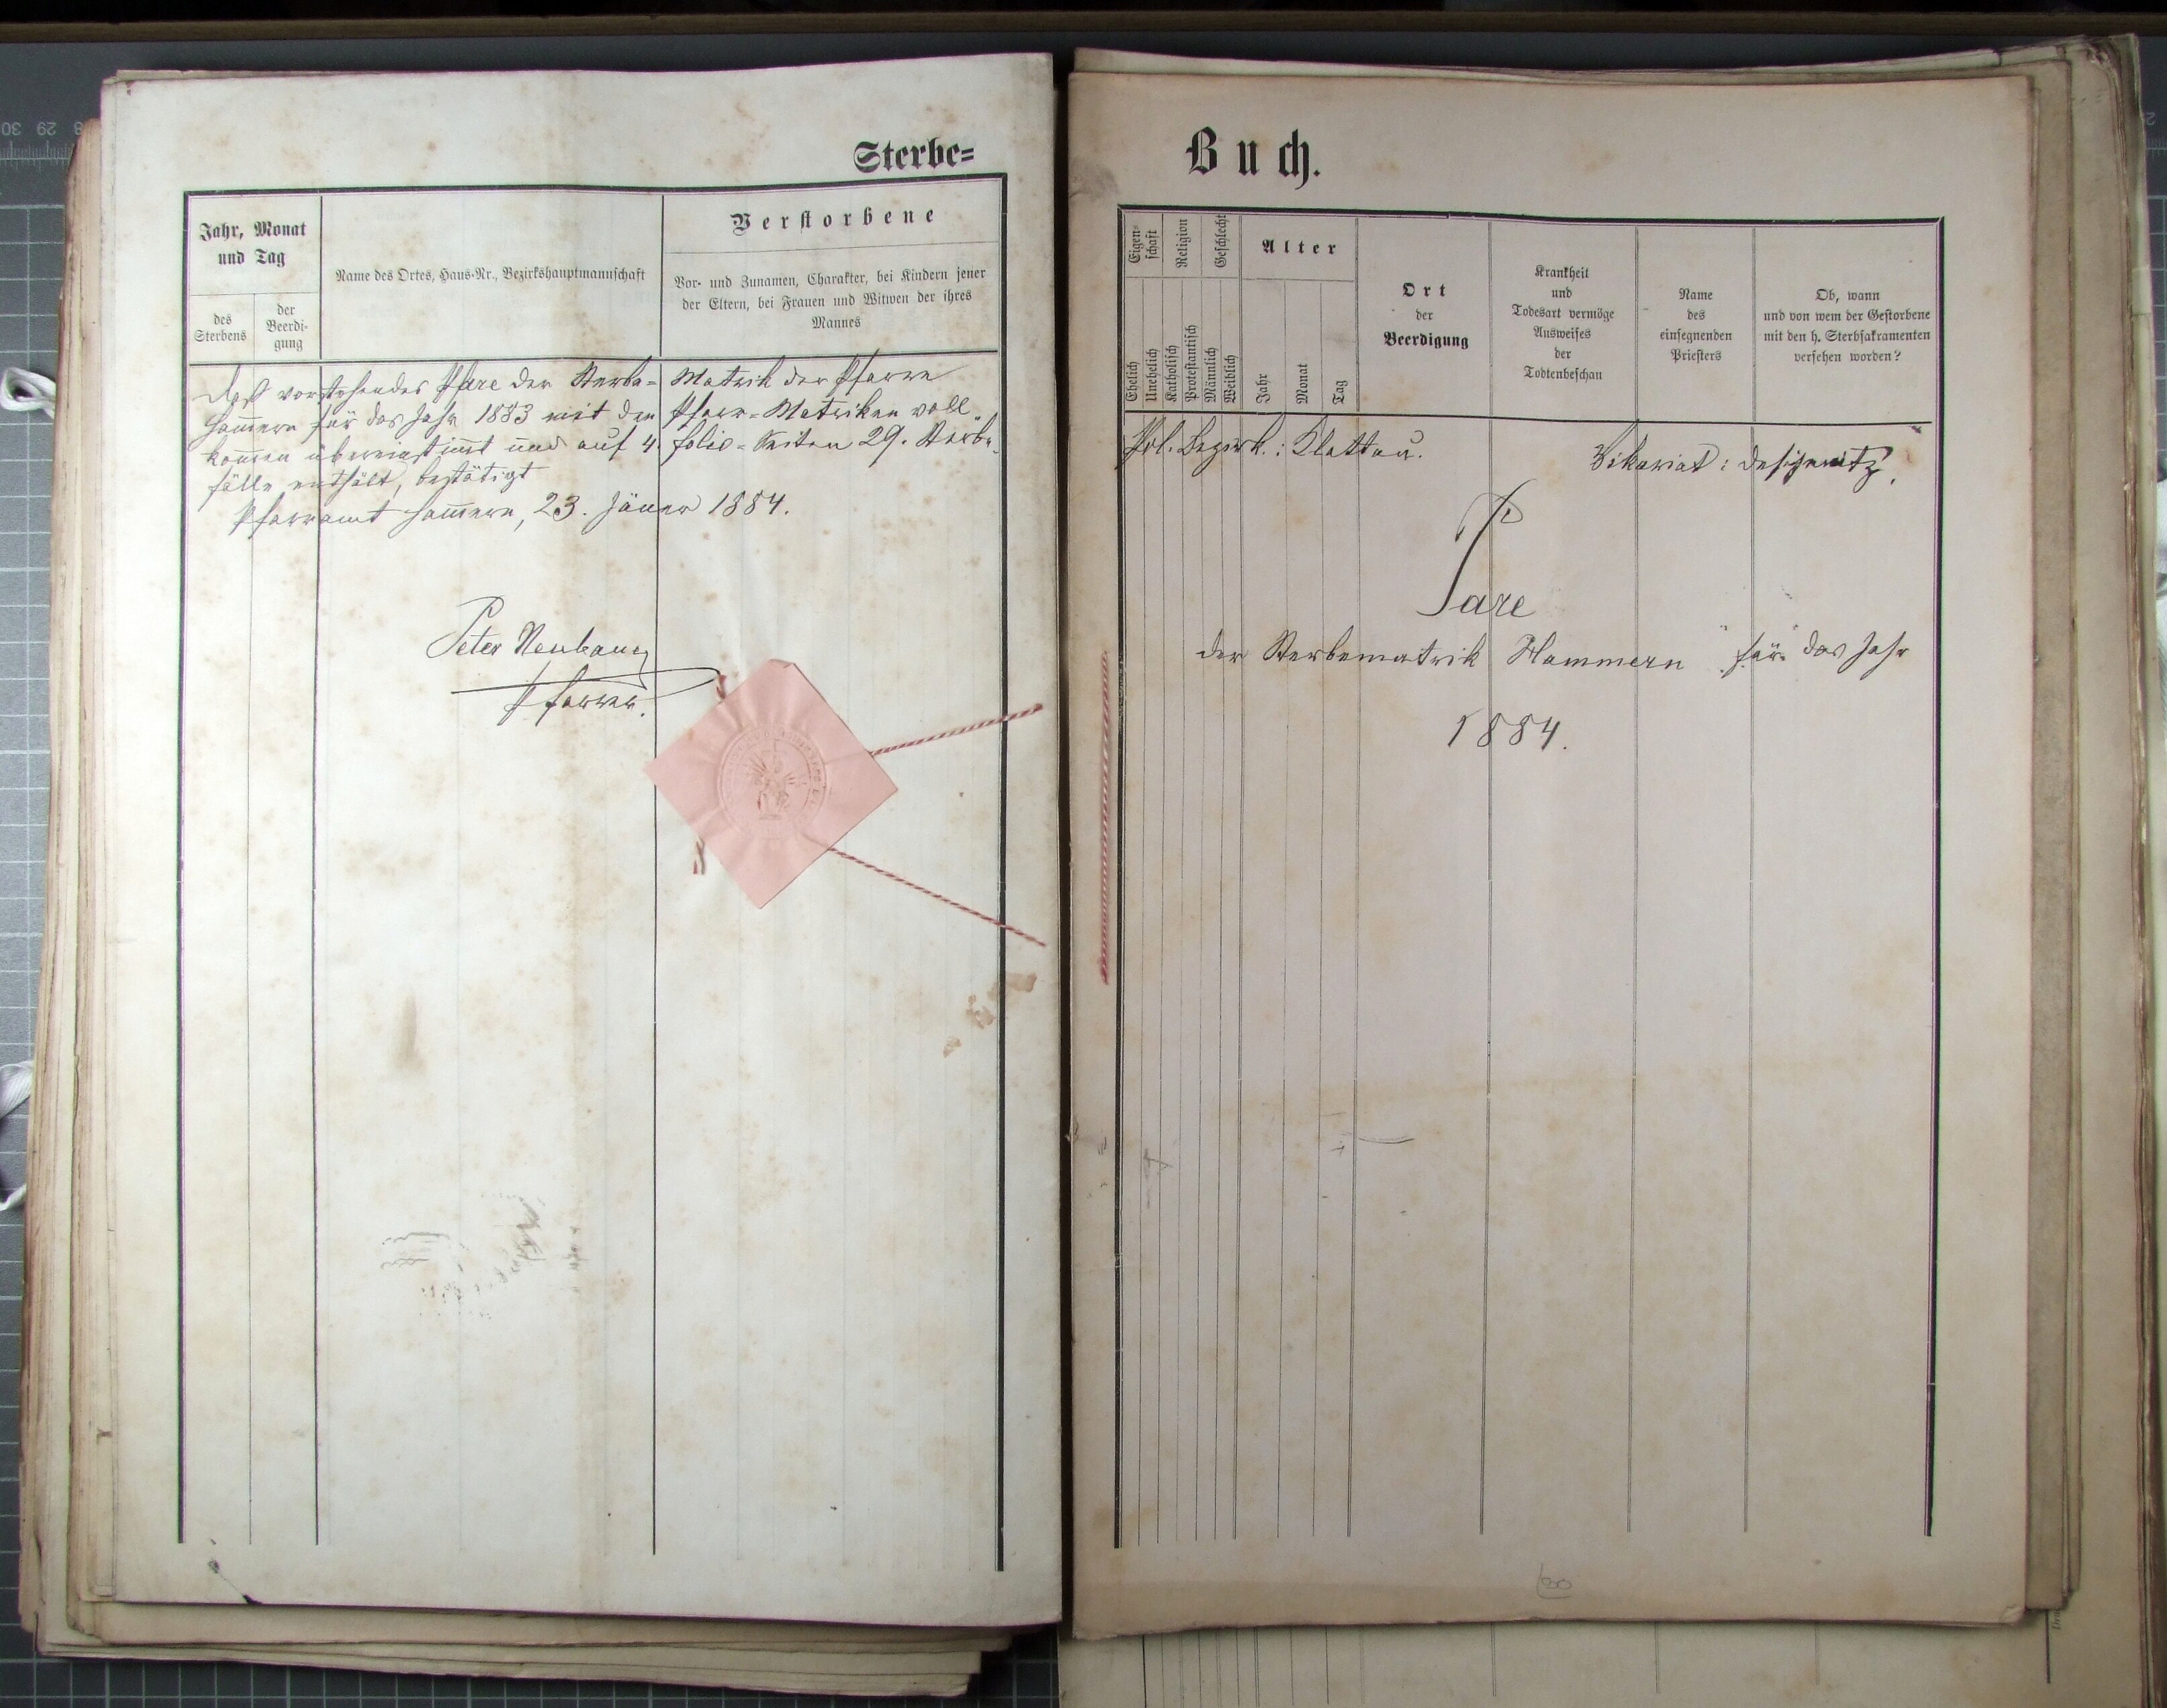 Sterbe=
Jahr, Monat
und Tag
des
Sterbens
der
Beerdi-
gung
Name des Ortes, Haus-Nr., Bezirkshauptmannschaft
Verstorbene
Vor- und Zunamen, Charakter, bei Kindern jener
der Eltern, bei Frauen und Witwen der ihres
Mannes
Daß vorstehendes Pare der Sterbe= Matrik der Pfarre
Hammern für das Jahr 1883 mit den Pfarr=Matriken voll„
kommen übereinstimmt und auf 4 folio=Seiten 29. Sterbe„
fälle enthält, bestätigt
Pfarramt Hammern, 23. Jäner 1884.
Peter Neubauer
Pfarrer.
Buch.
Eigen-
schaft
Religion
Geschlecht
Alter
Ehelich
Unehelich
Katholisch
Protestantisch
Männlich
Weiblich
Jahr
Monat
Tag
Ort
der
Beerdigung
Krankheit
und
Todesart vermöge
Ausweises
der
Todtenbeschau
Name
des
einsegnenden
Priesters
Ob, wann
und von wem der Gestorbene
mit den h. Sterbsakramenten
versehen worden?
Pol. Bezirk.: Klattau. Vikariat: Deschenitz.
Pare
der Sterbematrik Hammern für das Jahr
1884.